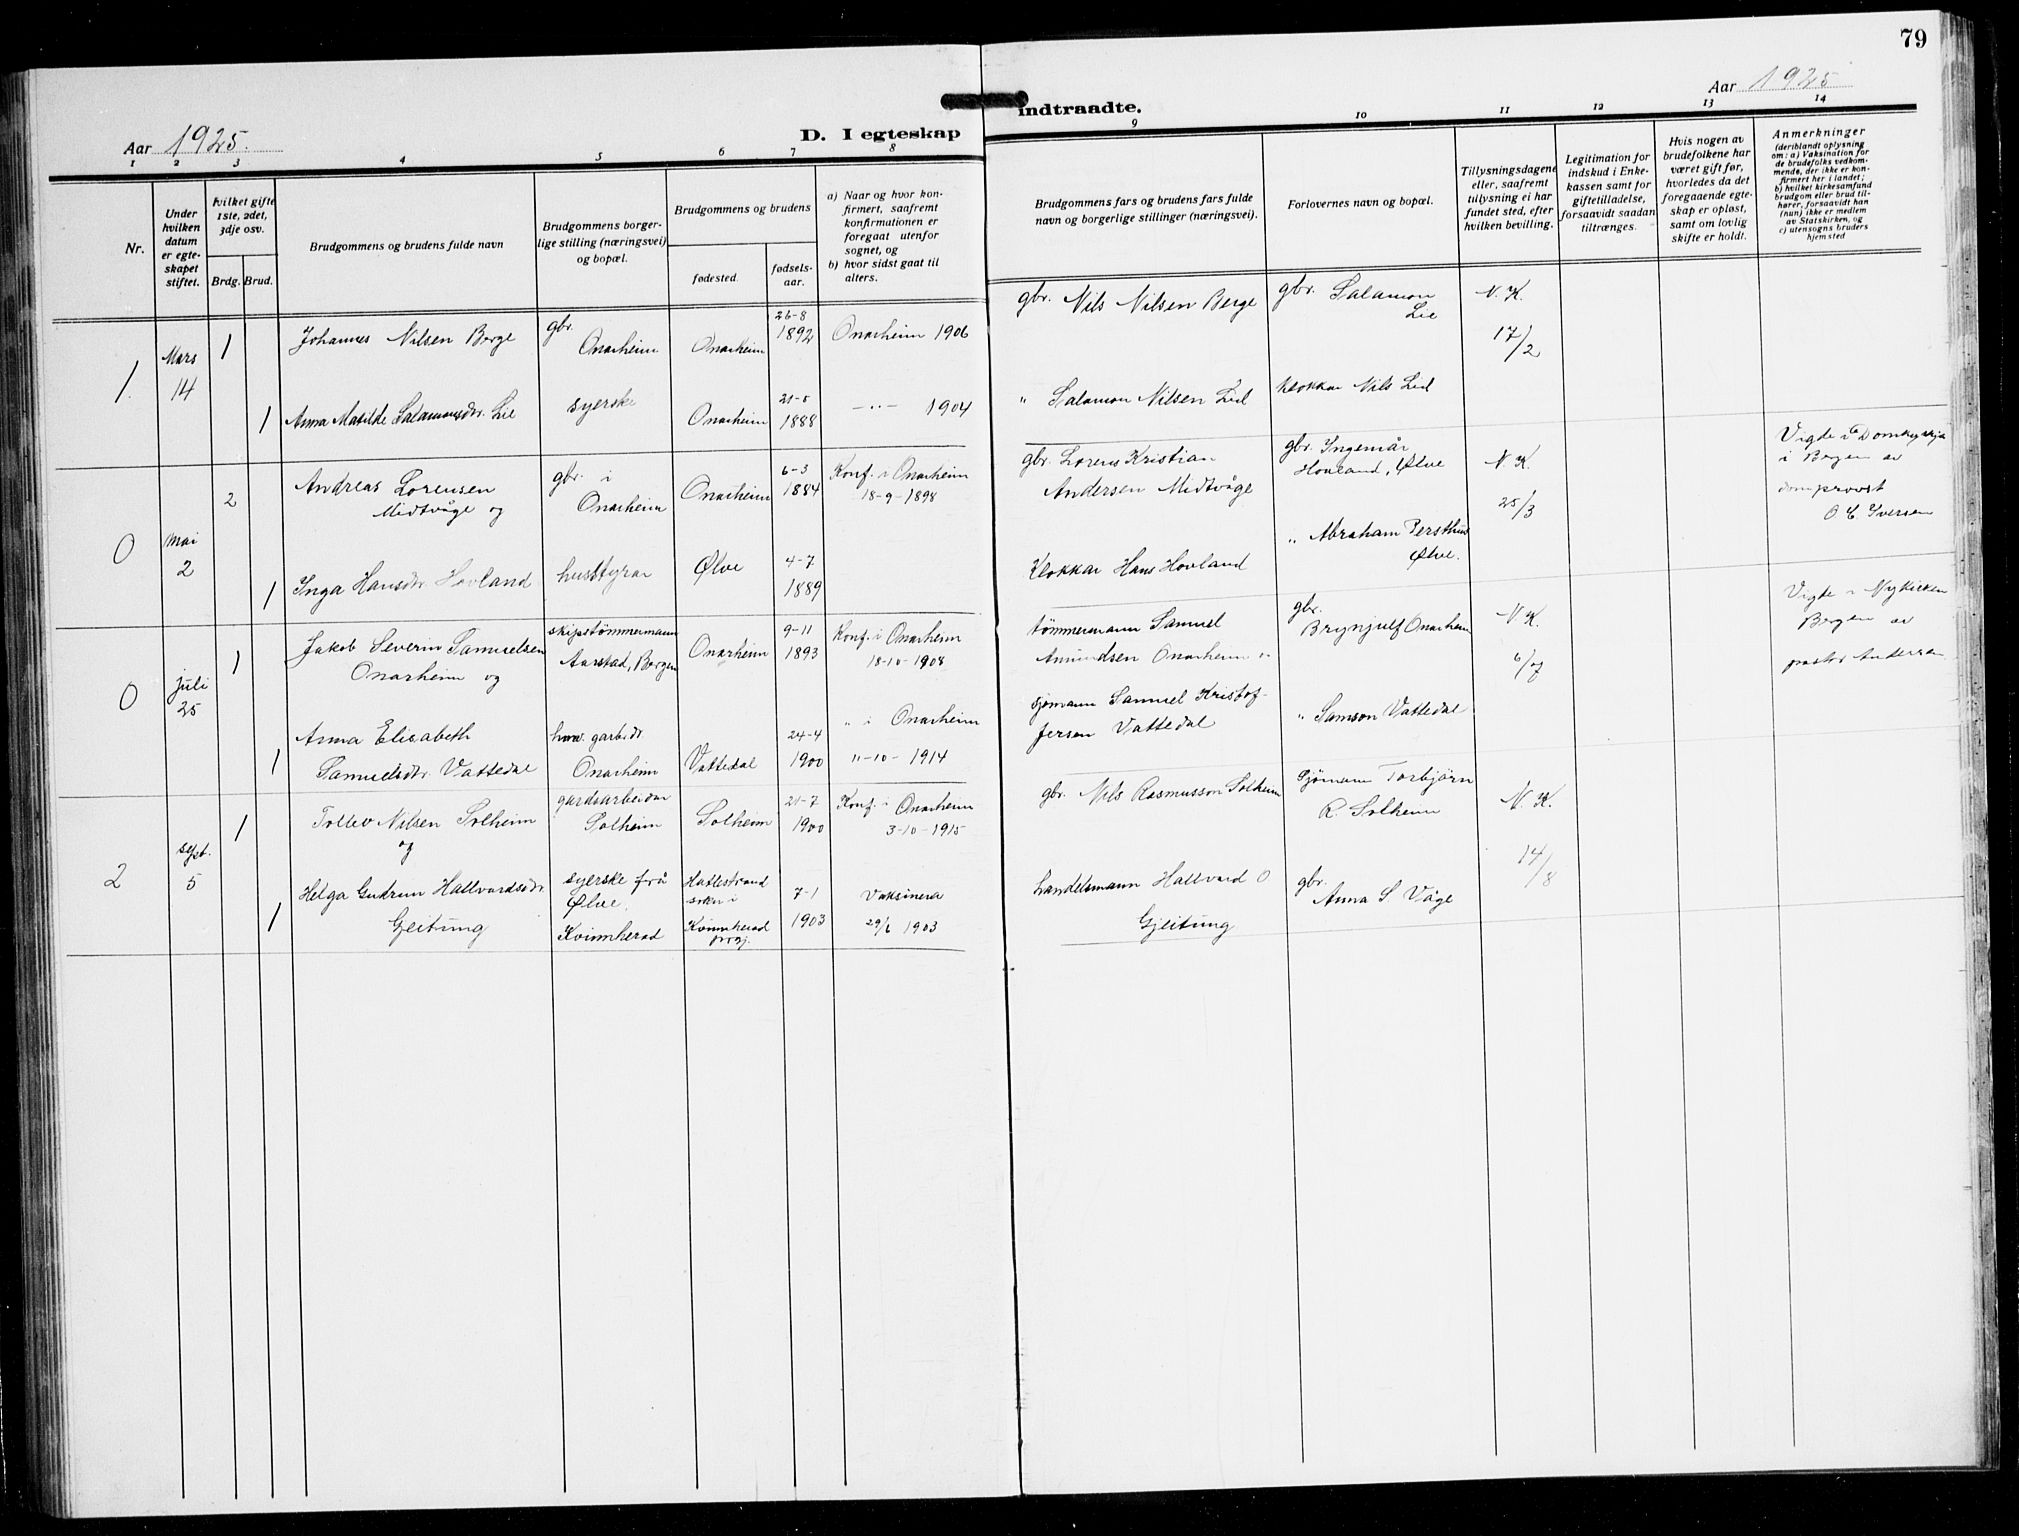 79
Aar 1925.
D. I egteskap
indtraadte.
Aar 1925
1 2 3 4 5 6 7 8 9 10 11 12 13 14
Nr.
Under hvilken datum er egteskapet stiftet.
hvilket gifte 1ste, 2det, 3dje osv.
Brdg. Brud.
Brudgommens og brudens fulde navn
Brudgommens borgerlige stilling (næringsvei) og bopæl.
Brudgommens og brudens
fødested.
fødselsaar.
a) Naar og hvor konfirmert, saafremt konfirmationen er foregaat utenfor sognet, og
b) hvor sidst gaat til alters.
Brudgommens fars og brudens fars fulde navn og borgerlige stillinger (næringsvei).
Forlovernes navn og bopæl.
Tillysningsdagene eller, saafremt tillysning ei har fundet sted, efter hvilken bevilling.
Legitimation for indskud i Enkekassen samt for giftetilladelse, forsaavidt saadan tiltrænges.
Hvis nogen av brudefolkene har været gift før, hvorledes da det foregaaende egteskap er opløst, samt om lovlig skifte er holdt.
Anmerkninger (deriblandt oplysning om: a) Vaksination for de brudefolks vedkommende, der ikke er konfirmert her i landet; b) hvilket kirkesamfund brudgom eller brud tilhører, forsaavidt han (hun) ikke er medlem av Statskirken, og c) utensogns bruders hjemsted
1. Mars 14 1 Johannes Nilsen Berge gbr. Onarheim Onarheim 26-8 1892 Onarheim 1906 gbr. Nils Nilsen Berge gbr. Salamon Lie N. K. 17/2
1 Anna Matilde Salamonsdr. Lie syerske Onarheim 21-5 1888 -"- 1904 " Salamon Nilsen Lid klokkar Nils Lid
0 Mai 2 2 Andreas Lorensen Midtvåge og gbr. i Onarheim Onarheim 6-3 1884 Konf. i Onarheim 18-9-1898 gbr. Lorens Kristian Andersen Midtvåge gbr. Ingemår Hovland, Ølve N. K. 25/3 Vigde i Domkyrkja i Bergen av domprovst O. C. Iversen
1 Inga Hansdr. Hovland husstyrar Ølve 4-7 1889 Klokkar Hans Hovland " Abraham Persthus Ølve.
0 Juli 25 1 Jakob Severin Samuelsen Onarheim og skipstømmermann Aarstad, Bergen Onarheim 9-11 1893 Konf. i Onarheim 18-10-1908 tømmermann Samuel Amundsen Onarheim gbr. Brynjulf Onarheim N. K. 6/7 Vigde i Nykirken Bergen av pastor Andersen
1 Anna Elisabeth Samuelsdr. Vattedal garbdr. Onarheim Vattedal 24-4 1900 " i Onarheim 11-10-1914 sjømann Samuel Kristofersen Vattedal " Samson Vattedal
2 Sept. 5 1 Tollev Nilsen Solheim og gardsarbeidar Solheim Solheim 21-7 1900 Konf. i Onarheim 3-10-1915 gbr. Nils Rasmusson Solheim Sjømann Torbjørn R. Solheim N. K. 14/8
1 Helga Gudrun Hallvardsdr. Gjeitung syerske frå Ølve, Kvinnherad Hattestrand sokn i Kvinnherad prgj. 7-1 1903 Vaksinera 29/6 1903 handelsmann Hallvard O Gjeitung gbr. Anna S. Våge